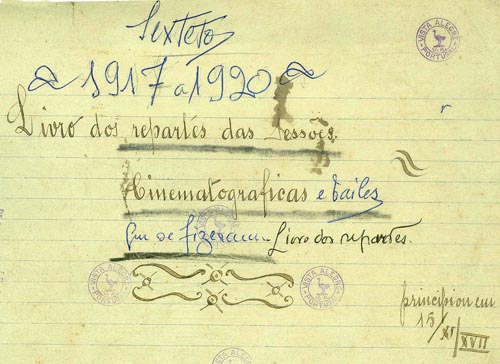 Sexteto
~ 1917 a 1920 ~
Livro dos repartes das Sessões.
Cinematograficas e Bailes
Que se fizeram Livro dos repartes.
principiou em
15/XI/XVII
VISTA ALEGRE PORTUGAL
VISTA ALEGRE PORTUGAL
VISTA ALEGRE PORTUGAL
VISTA ALEGRE PORTUGAL
VISTA ALEGRE